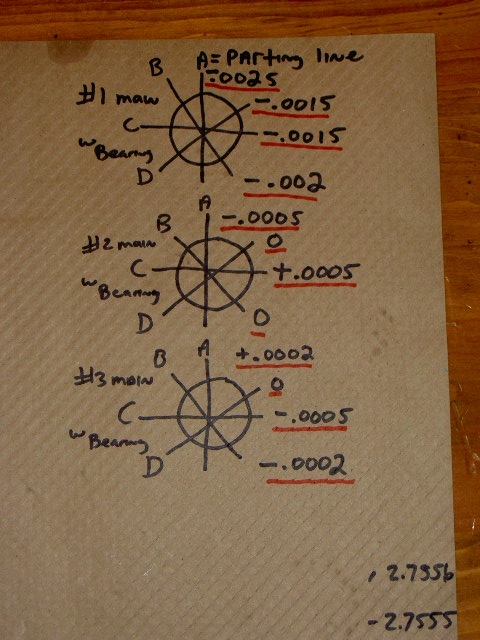 A = PARting line
B -.0025
#1 main -.0015
C -.0015
w Bearing
D -.002
A -.0005
B 0
#2 main
C +.0005
w Bearing
D 0
A +.0002
B 0
#3 main
C -.0005
w Bearing
D -.0002
, 2.7556
- 2.7555